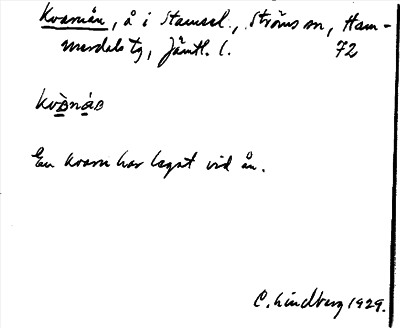 Kvarnån, å i Stamsel., Ströms sn, Ham-
merdals tg, Jämtl. l. 72
En kvarn har legat vid ån.
C. Lindberg 1929.